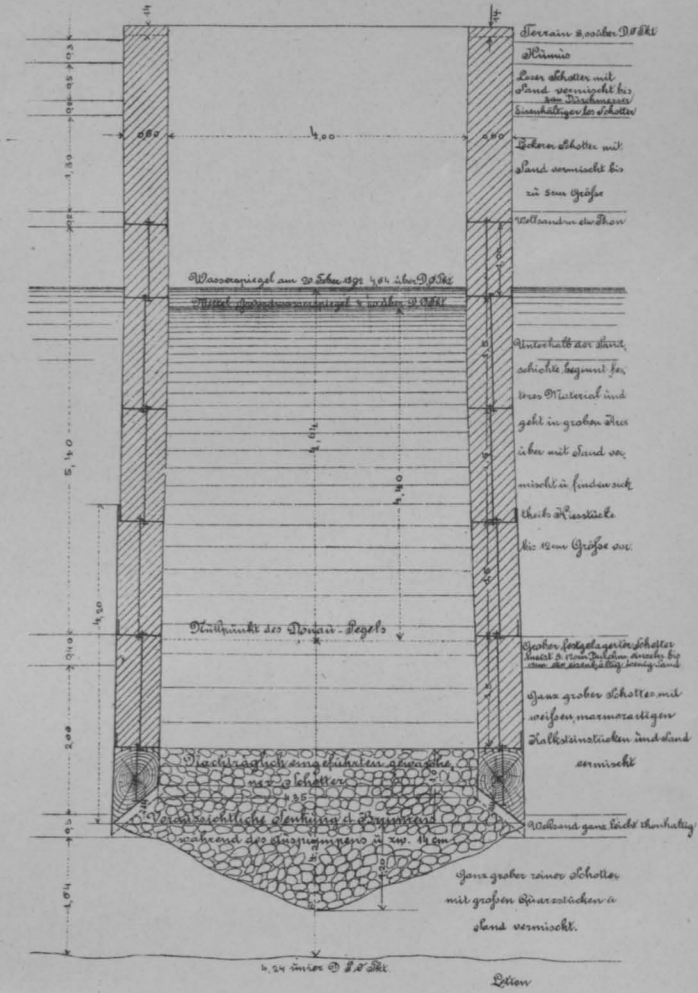 14
14
Terrain 8,00 über D.0 Pkt
Humus
Loser Schotter mit
Sand vermischt bis
Durchmesser
Eisenhältiger los. Schotter
0,60
4,00
0,60
Lockerer Schotter mit
Sand vermischt bis
zu 5cm Größe
1,30
Wellsand
Thon
1,00
Wasserspiegel am 20 1892 4,64 über D.0 Pkt
Mittel Grundwasserspiegel über D.0 Pkt
Unterhalb der Sand,
schichte beginnt fe,
steres Material und
geht in groben Kies
über mit Sand ver,
mischt u finden sich
theils Kiesstücke
bis 12cm Größe vor.
4,64
4,40
5,40
4,20
Nullpunkt des Donau-Pegels
0,40
Grober festgelagerter Schotter
2,00
Ganz grober Schotter mit
weißen, marmorartigen
Kalksteinstücken und Sand
vermischt
Nachträglich eingeführten gewasche,
ner Schotter
Voraussichtliche Senkung d. Brunnens
während des Auspumpens u. zw. 14 cm
Wellsand ganz leicht thonhaltig
1,20
Ganz grober reiner Schotter
mit großen Quarzstücken u
Sand vermischt.
4,24 unter D
Letten